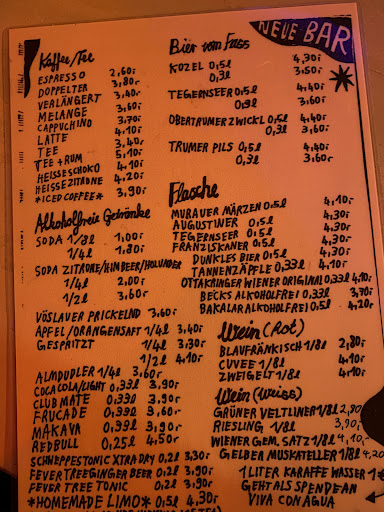 NEUE BAR
Kaffee/Tee
ESPRESSO 2,60.-
DOPPELTER 3,80.-
VERLÄNGERT 3,40.-
MELANGE 3,60.-
CAPPUCHINO 3,70.-
LATTE 4,10.-
TEE 4,10.-
TEE + RUM 5,10.-
HEISSESCHOKO 4,10.-
HEISSE ZITRONE 4,20.-
*ICED COFFEE* 3,90.-
Alkoholfreie Getränke
SODA 1/8l 1,00.-
1/4l 1,80.-
SODA ZITRONE/HIMBEER/HOLUNDER
1/4l 2,00.-
1/2l 3,60.-
VÖSLAUER PRICKELND 3,60.-
APFEL/ORANGENSAFT 1/4l 3,40.-
GESPRITZT 1/4l 3,30.-
1/2l 4,10.-
ALMDUDLER 1/4l 3,60.-
COCA COLA/LIGHT 0,33l 3,90.-
CLUB MATE 0,33l 3,90.-
FRUCADE 0,33l 3,60.-
MAKAVA 0,33l 3,90.-
REDBULL 0,25l 4,50.-
SCHWEPPES TONIC XTRA DRY 0,2l 3,30.-
FEVER TREE GINGER BEER 0,2l 3,90.-
FEVER TREE TONIC 0,2l 3,90.-
*HOMEMADE LIMO* 0,5l 4,30.-
Bier vom Fass
KOZEL 0,5l 4,30.-
0,3l 3,50.-
TEGERNSEER 0,5l 4,40.-
0,3l 3,60.-
OBERTRUMER ZWICKL 0,5l 4,40.-
0,3l 3,60.-
TRUMER PILS 0,5l 4,40.-
0,3l 3,60.-
Flasche
MURAUER MÄRZEN 0,5l 4,10.-
AUGUSTINER 0,5l 4,30.-
TEGERNSEER 0,5l 4,30.-
FRANZISKANER 0,5l 4,30.-
DUNKLES BIER 0,5l 4,10.-
TANNENZÄPFLE 0,33l 4,10.-
OTTAKRINGER WIENER ORIGINAL 0,33l 4,10.-
BECKS ALKOHOLFREI 0,33l 3,70.-
BAKALAR ALKOHOLFREI 0,5l 4,20.-
Wein (Rot)
BLAUFRÄNKISCH 1/8l 2,80.-
CUVEE 1/8l 4,10.-
ZWEIGELT 1/8l 4,10.-
Wein (Weiss)
GRÜNER VELTLINER 1/8l 2,80.-
RIESLING 1/8l 3,90.-
WIENER GEM. SATZ 1/8l 4,10.-
GELBER MUSKATELLER 1/8l 4,20
1 LITER KARAFFE WASSER 1 €
GEHT ALS SPENDE AN
VIVA CON AGUA